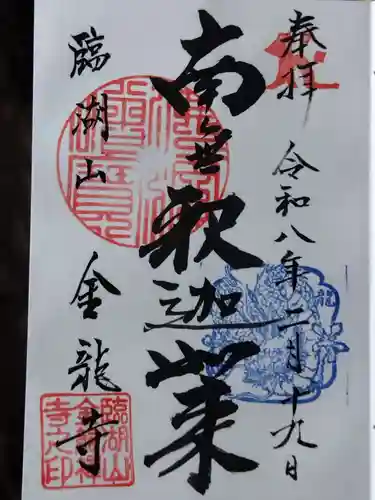 奉拝
令和八年二月十九日
南無釈迦山来
臨湖山
金龍寺
臨湖山
金龍禅
寺之印